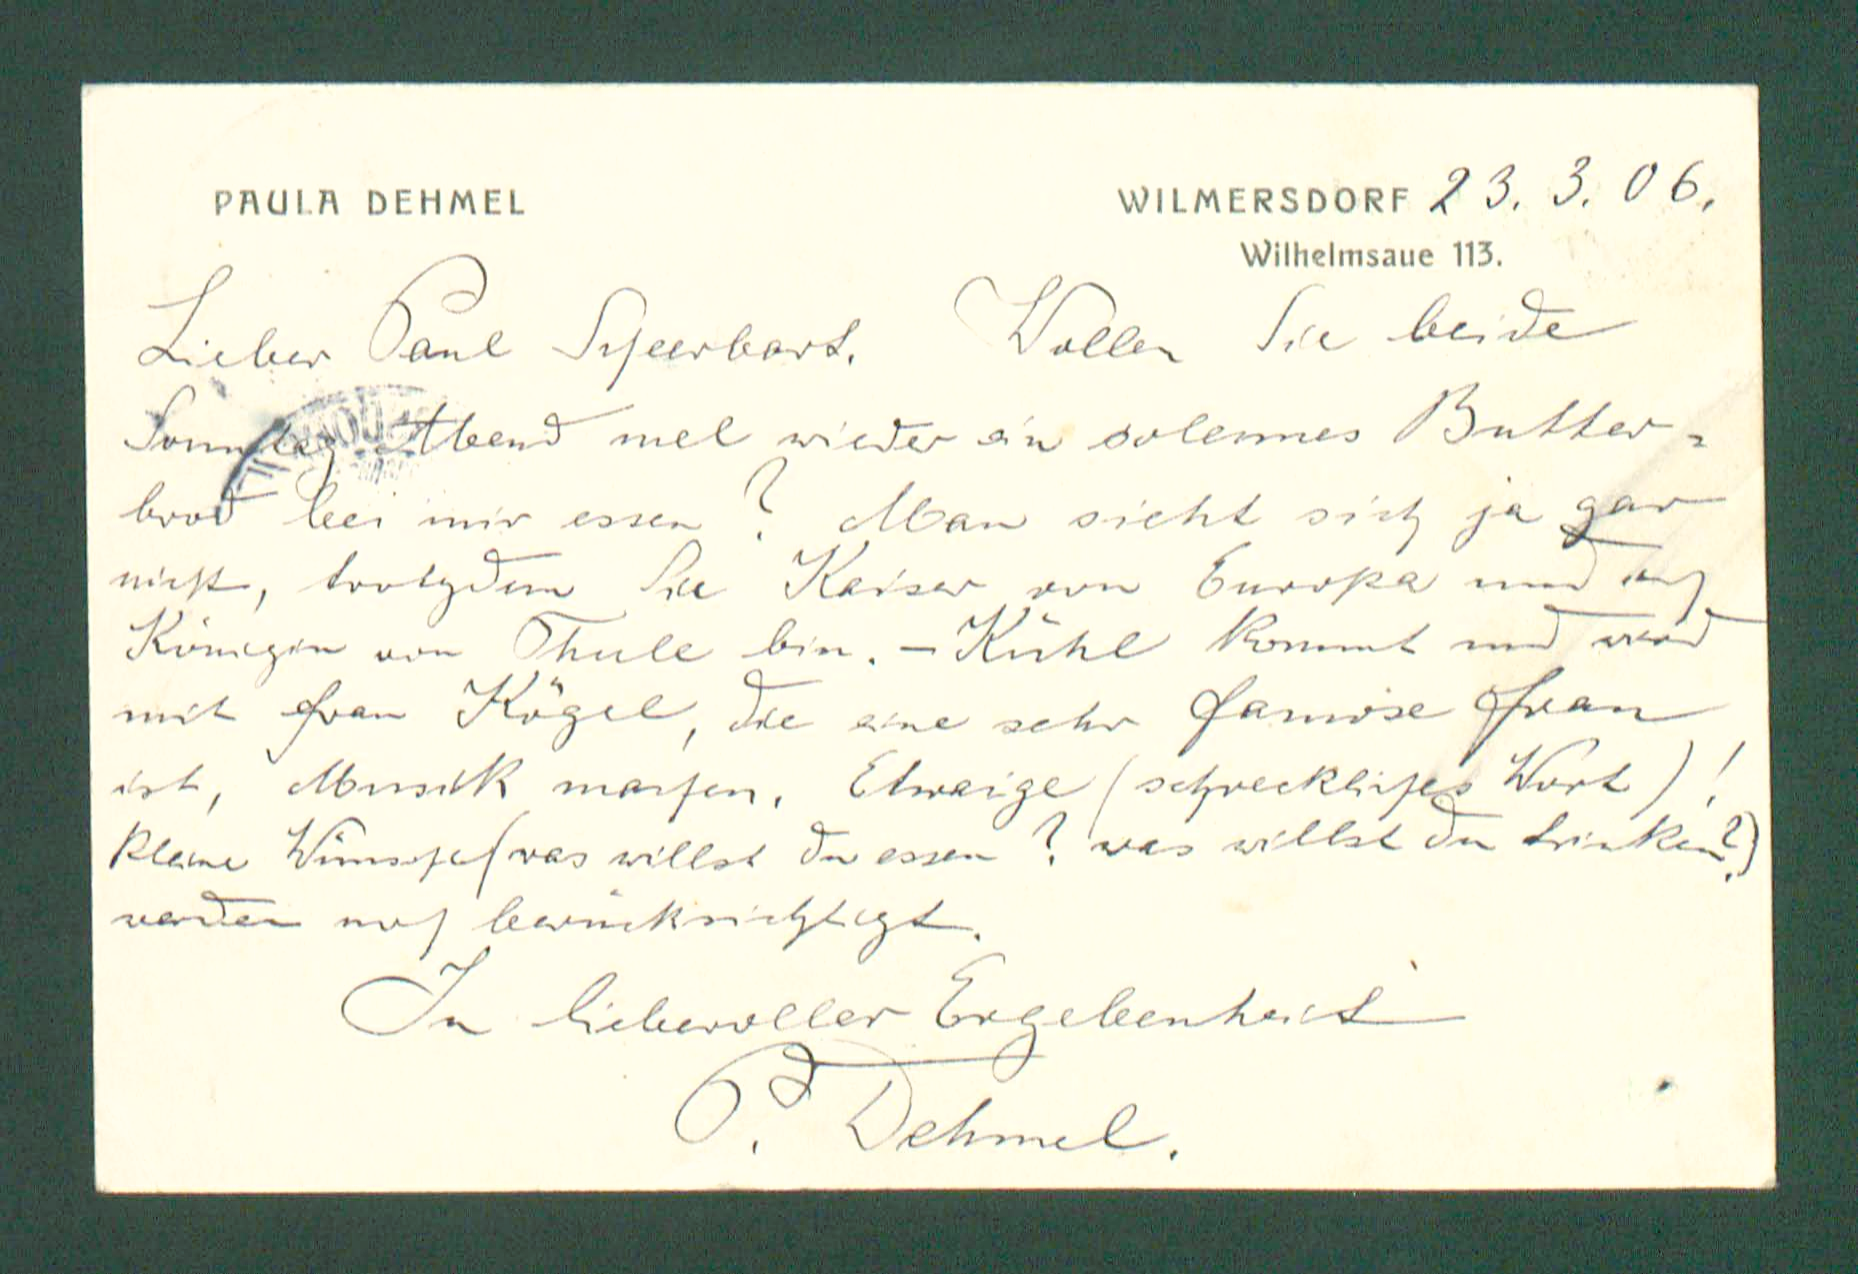 PAULA DEHMEL
WILMERSDORF 23. 3. 06.
Wilhelmsaue 113.
Lieber Paul Scheerbart. Wollen Sie beide
Sonntag Abend mal wieder ein solennes Butter-
brod bei mir essen? Man sieht sich ja gar
nicht, trotzdem Sie Kaiser von Europa und ich
Königin von Thule bin. – Kühl kommt und wird
mit Frau Kögel, die eine sehr famose Frau
ist, Musik machen. Etwaige (schreckliches Wort)!
kleine Wünsche (was willst du essen? was willst du trinken?)
werden noch berücksichtigt.
In liebevoller Ergebenheit
P. Dehmel.